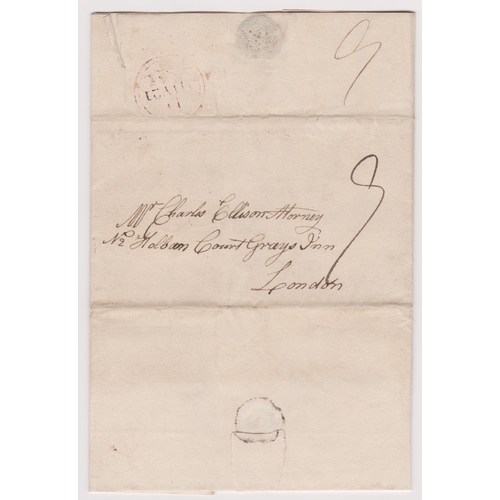 9
9
Mr Charles Ellison Attorney
No 2 Holban Court Grays Inn
London